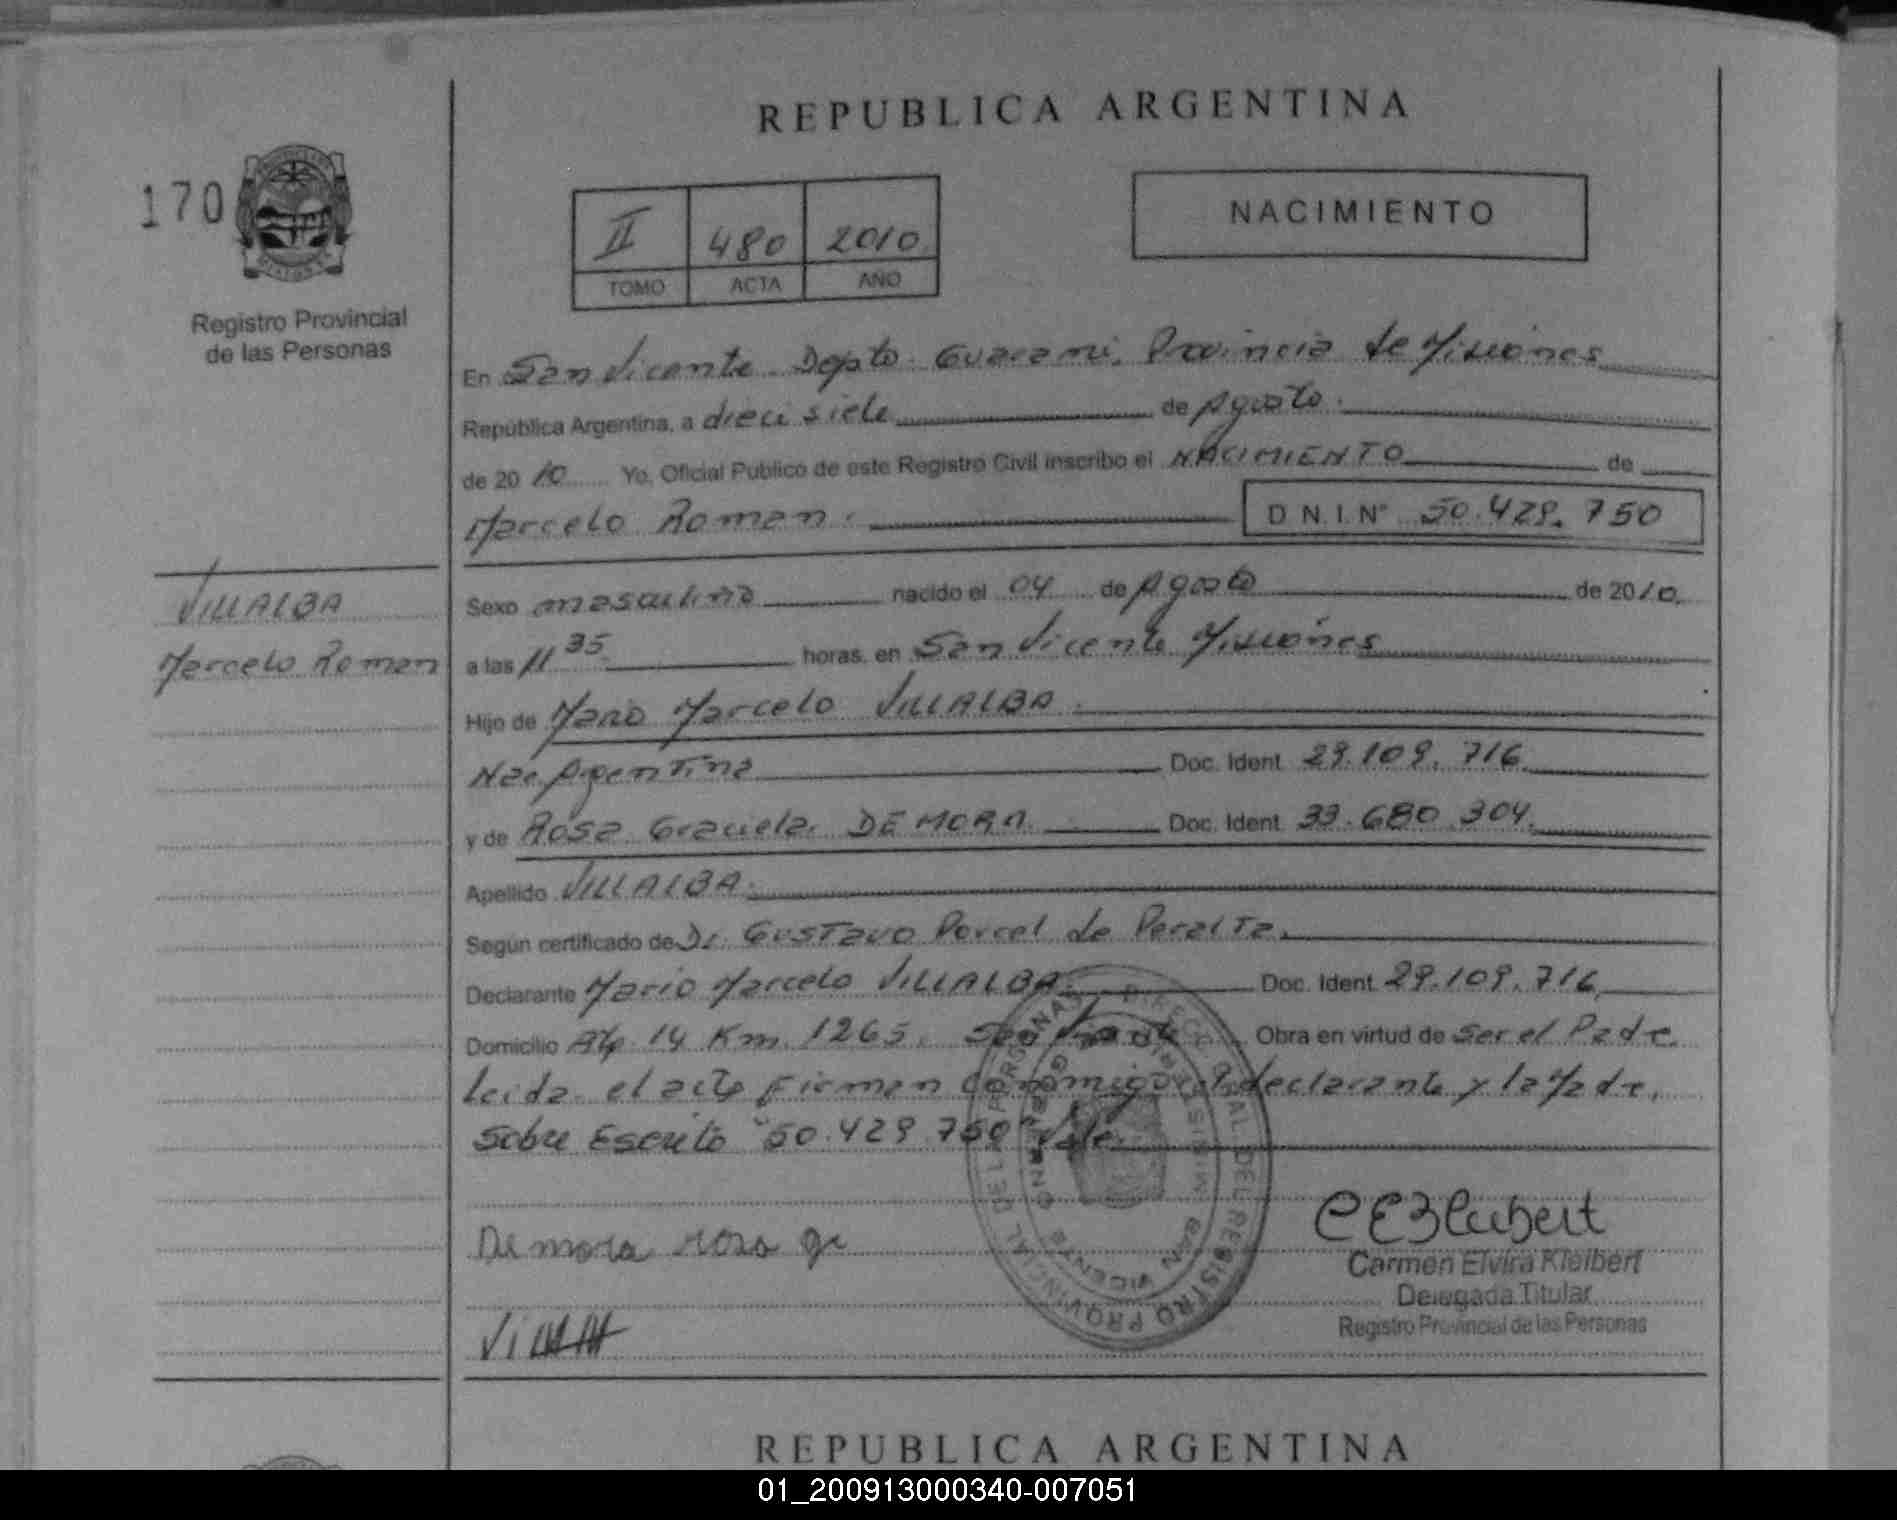 REPUBLICA ARGENTINA
170
II 480 2010
TOMO ACTA AÑO
NACIMIENTO
Registro Provincial
de las Personas
En San Vicente Depto. Guarani, Provincia de Misiones
República Argentina, a dieci siete de Agosto.
de 2010 Yo, Oficial Publico de este Registro Civil inscribo el NACIMIENTO de
Marcelo Roman. D.N.I.N° 50.429.750
VILLALBA
Marcelo Roman
Sexo masculino nacido el 04 de Agosto de 2010.
a las 11 35 horas, en San Vicente Misiones
Hijo de Mario Marcelo VILLALBA.
Nac. Argentina Doc. Ident. 29.109.716.
y de Rosa Graciela DE MORA. Doc. Ident. 33.680.304.
Apellido VILLALBA.
Según certificado de Dr. Gustavo Porcel de Peralta.
Declarante Mario Marcelo VILLALBA. Doc. Ident. 29.109.716.
Domicilio 14 Km. 1265. San Vicente Obra en virtud de Ser el Padre.
leida el acta Firman conmigo el declarante y la Madre.
Sobre Escrito "50.429.750" Vale.
DIRECC. GRAL. DEL REGISTRO PROVINCIAL DE LAS PERSONAS
SAN VICENTE
De mora rosa gr
Carmen Elvira Kleibert
Delegada Titular
Registro Provincial de las Personas
REPUBLICA ARGENTINA
01_200913000340-007051